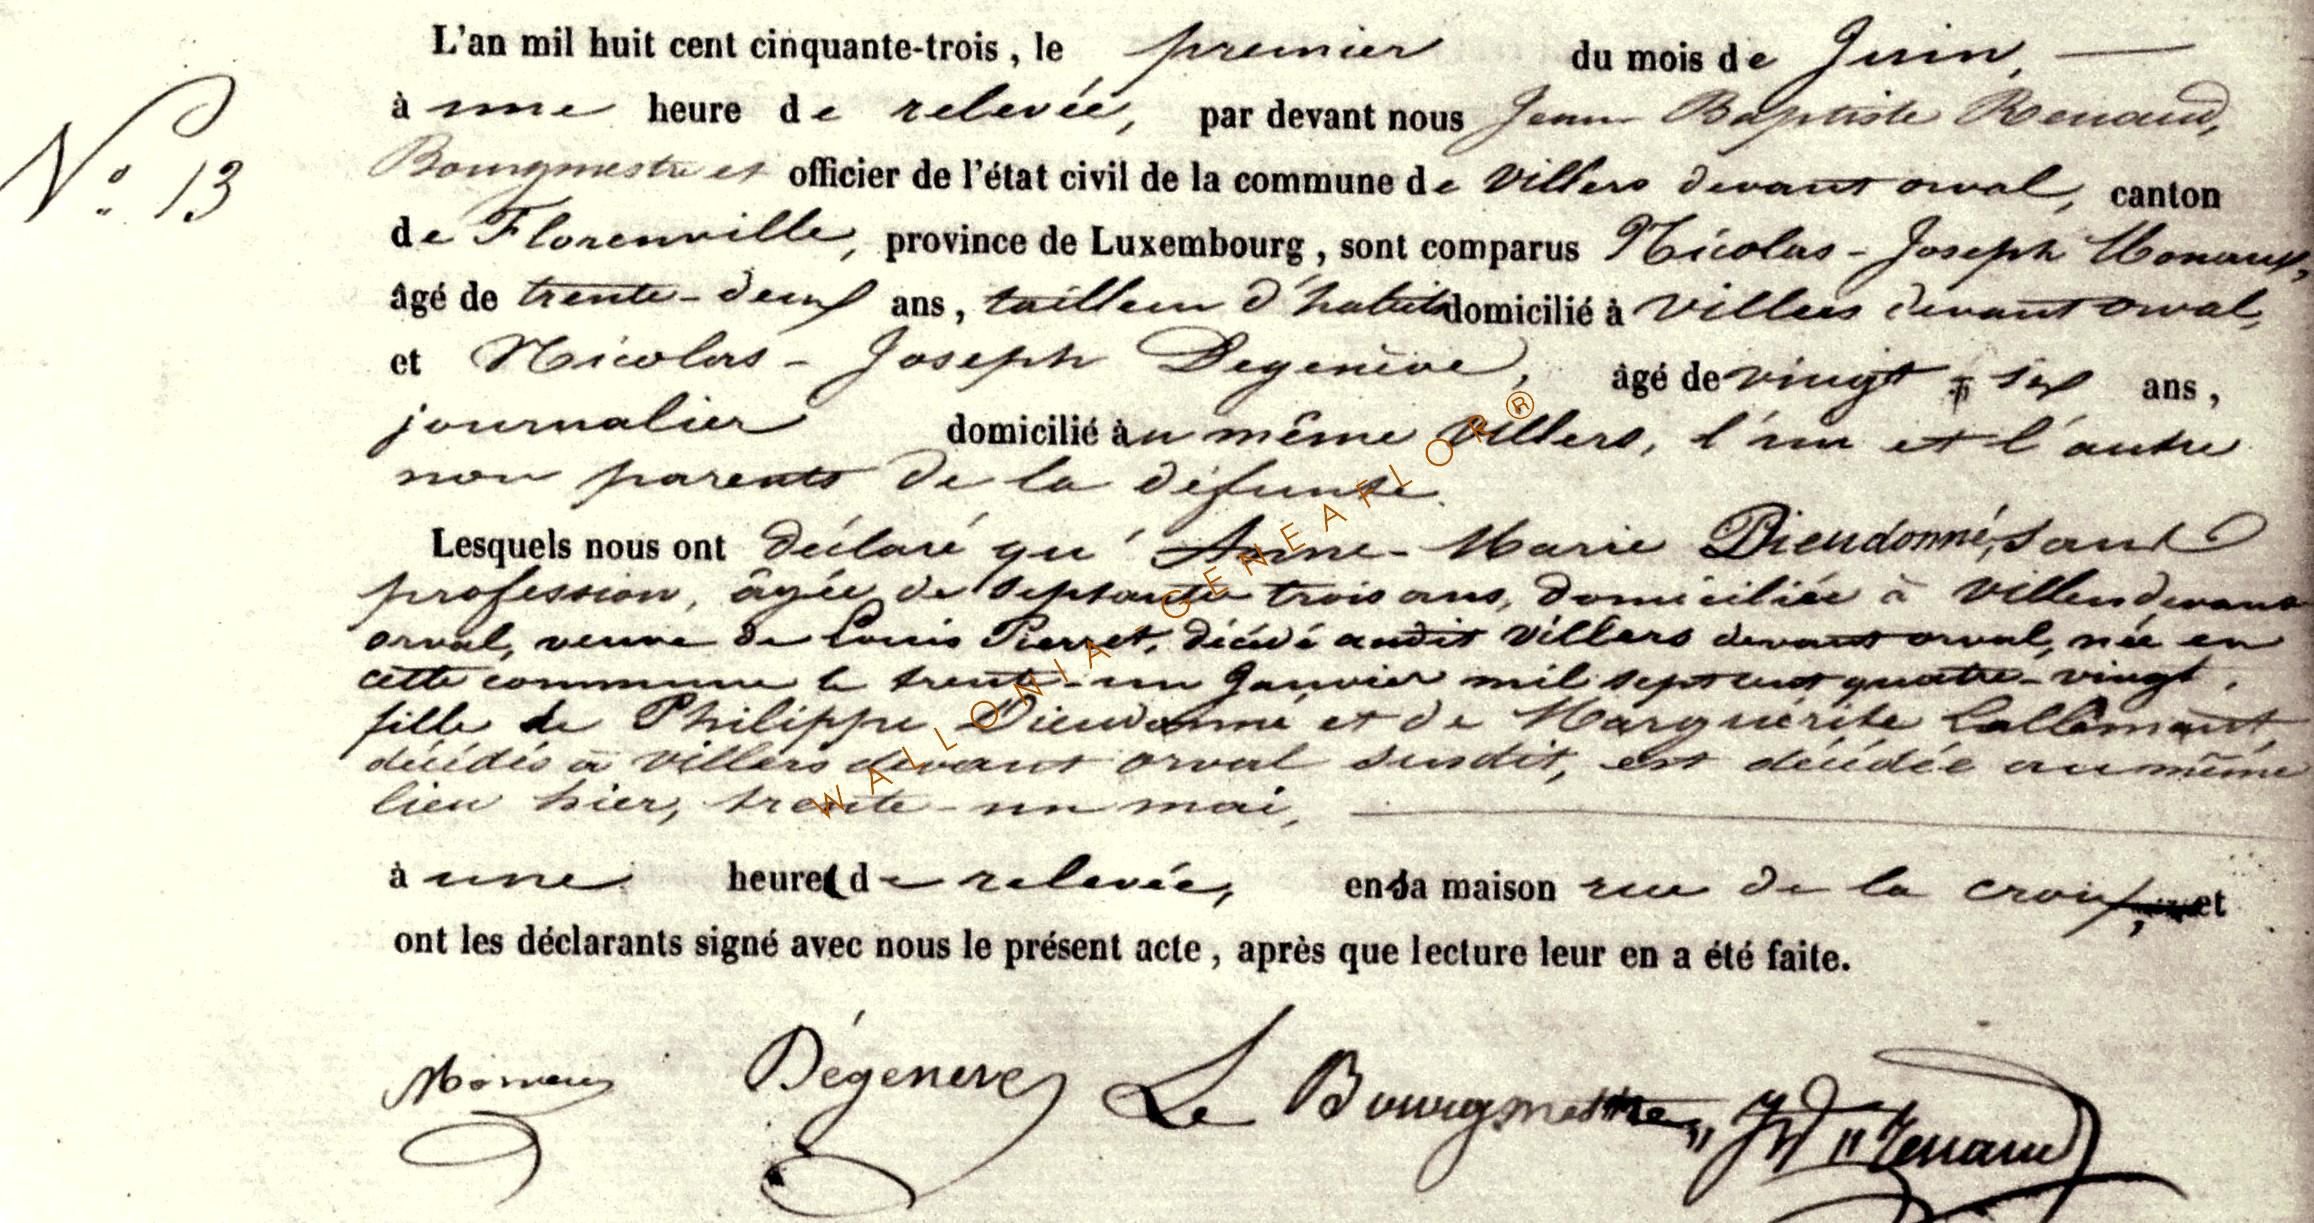 L'an mil huit cent cinquante-trois, le premier du mois de Juin,
à une heure de relevée, par devant nous Jean Baptiste Renaud,
N° 13
Bourgmestre et officier de l'état civil de la commune de Villers devant orval, canton
de Florenville, province de Luxembourg, sont comparus Nicolas-Joseph Monaux,
âgé de trente-deux ans, tailleur d'habits domicilié à Villers devant orval,
et Nicolas-Joseph Degenève, âgé de vingt-six ans,
journalier domicilié au même Villers, l'un et l'autre
non parents de la défunte.
Lesquels nous ont déclaré qu'Anne-Marie Dieudonné, sans
profession, âgée de septante trois ans, domiciliée à Villers devant
orval, veuve de Louis Pierret, décédé audit Villers devant orval, née en
cette commune le trente-un Janvier mil sept cent quatre-vingt,
fille de Philippe Dieudonné et de Marguérite Lallemant,
décédés à Villers devant orval susdit, est décédée au même
lieu hier, trente-un mai,
à une heure de relevée, en sa maison rue de la croix, et
ont les déclarants signé avec nous le présent acte, après que lecture leur en a été faite.
Monaux Dégeneve Le Bourgmestre, JB Renaud
WALLONIA-GENEAFLOR®